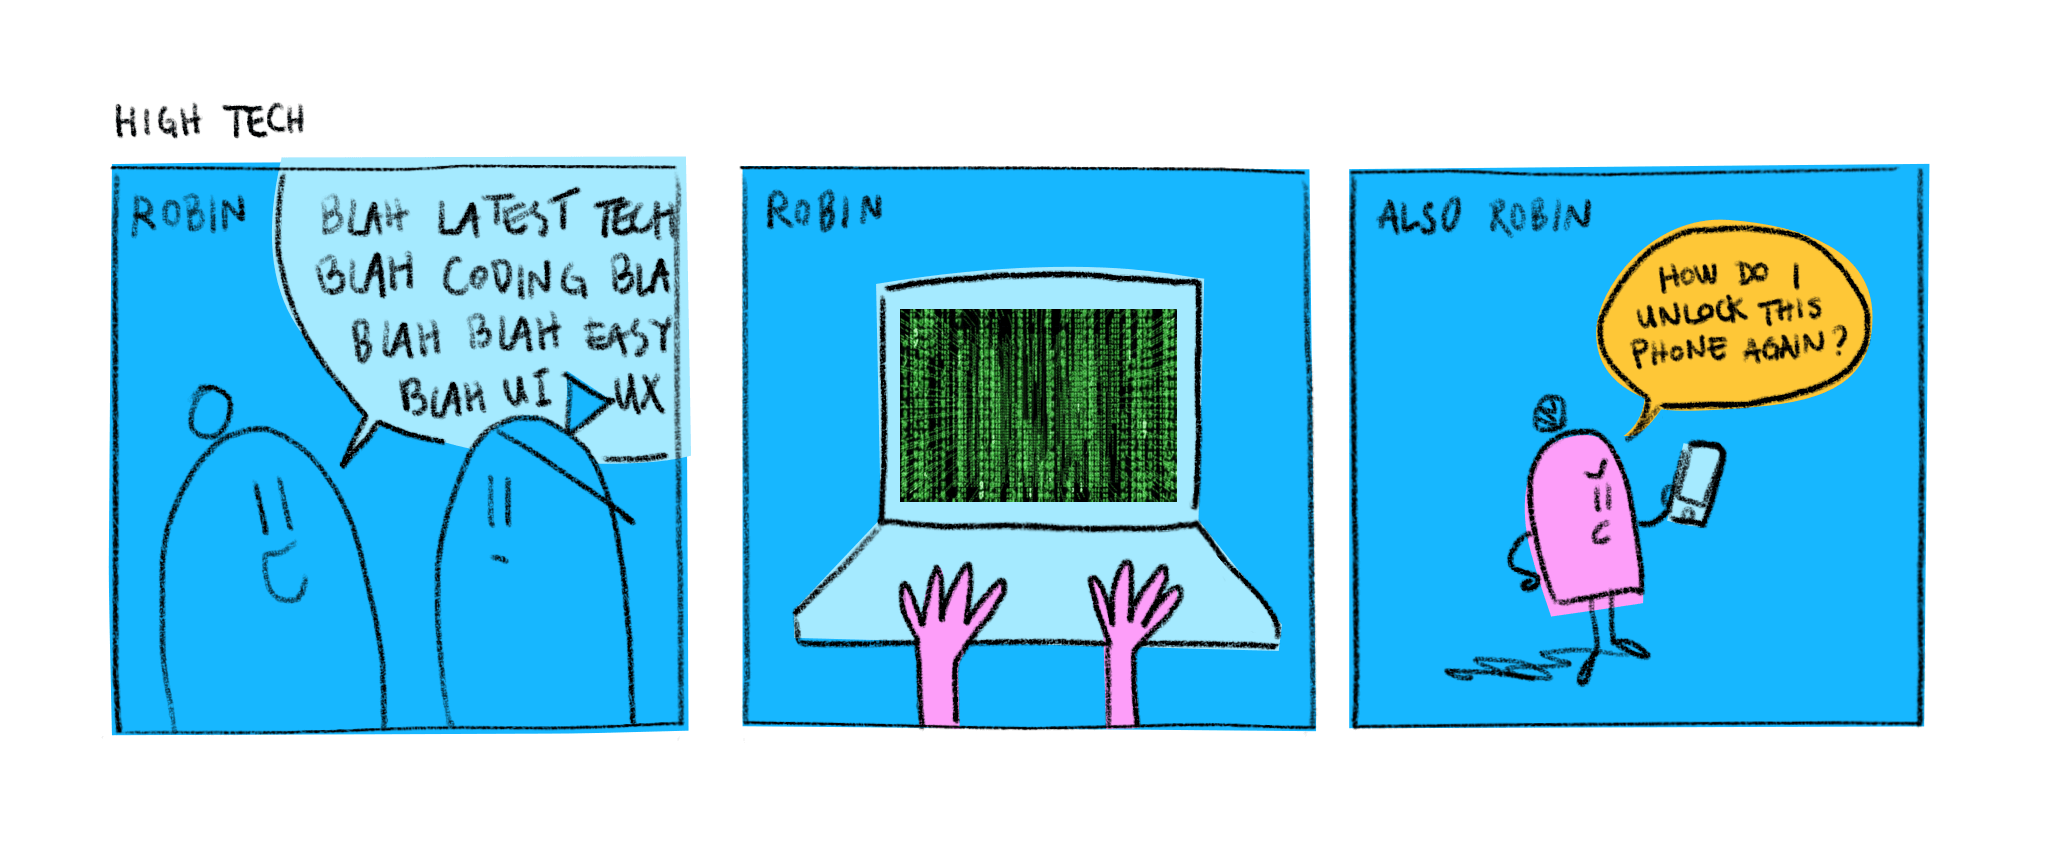 HIGH TECH
ROBIN
BLAH LATEST TECH
BLAH CODING BLA
BLAH BLAH EASY
BLAH UI UX
ROBIN
ALSO ROBIN
HOW DO I
UNLOCK THIS
PHONE AGAIN?